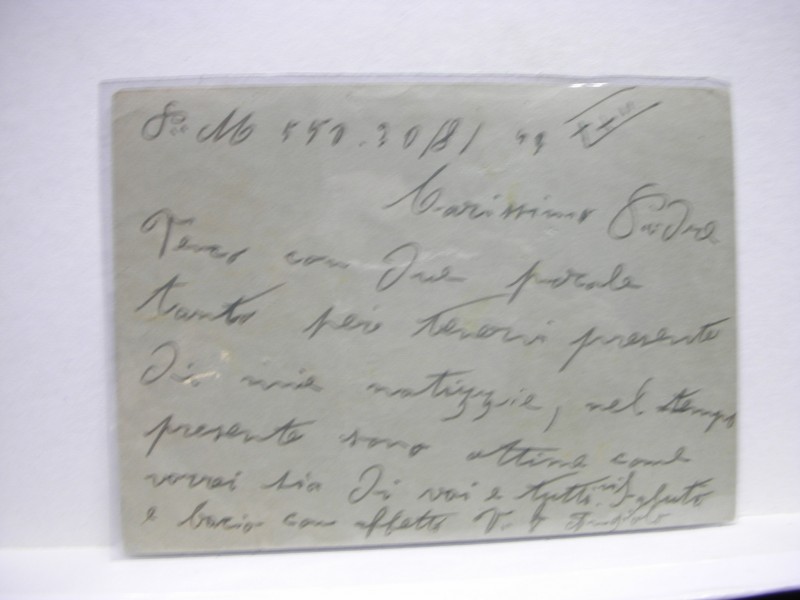 M 550. 20/8/
Carissimo Padre
Vengo con due parole
tanto per tenervi presente
di mie notizzie, nel tempo
presente sono ottime come
vorrei sia di voi e tutti. vi saluto
e bacio con affetto V.